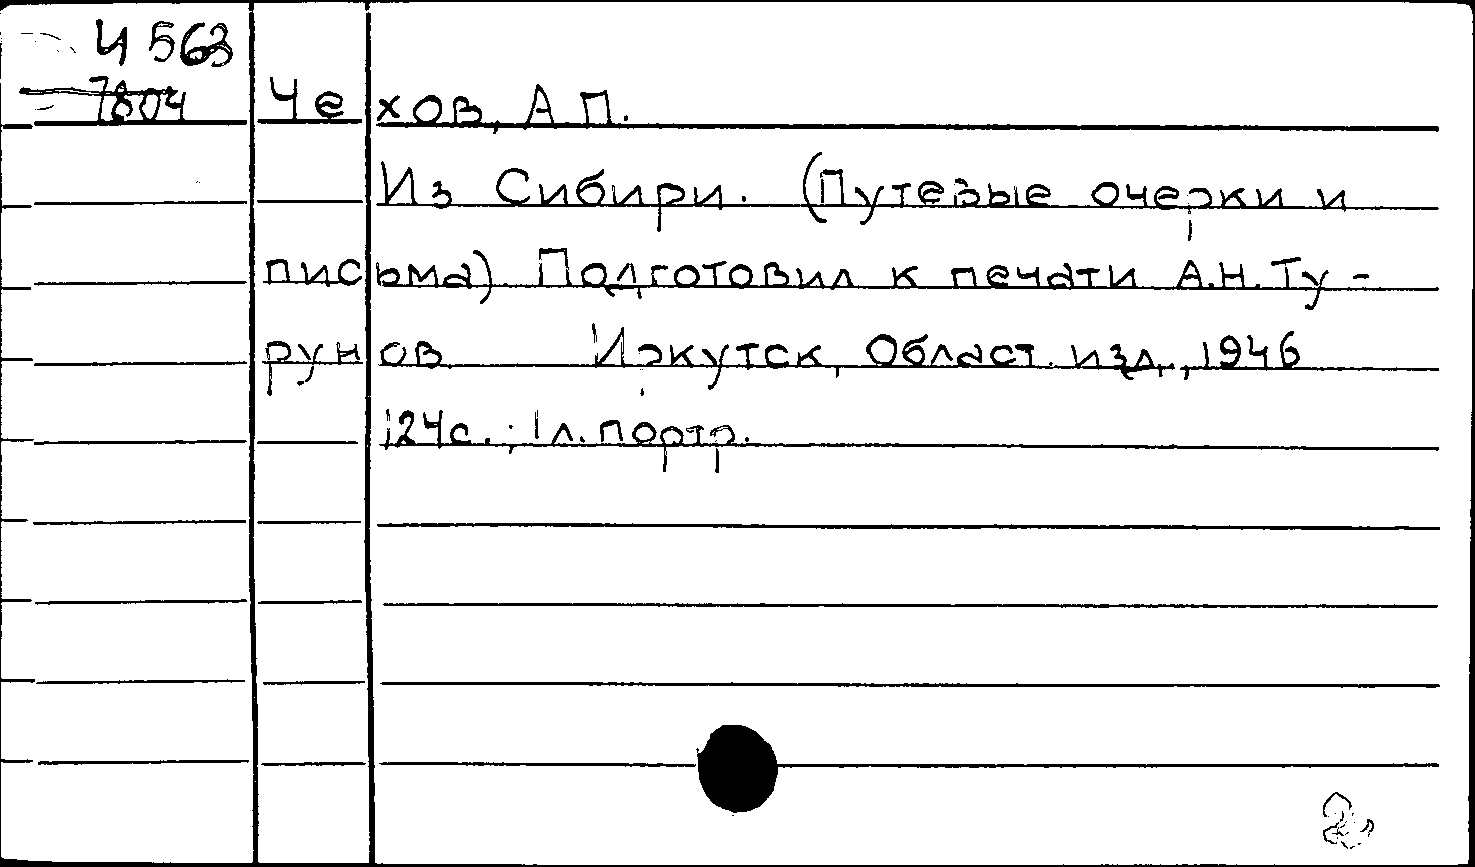 Ч 563
7804
Чехов, А.П.
Из Сибири. (Путевые очерки и
письма). Подготовил к печати А.Н.Ту-
рунов. Иркутск, Област. изд., 1946
124с.; 1 л. портр.
2